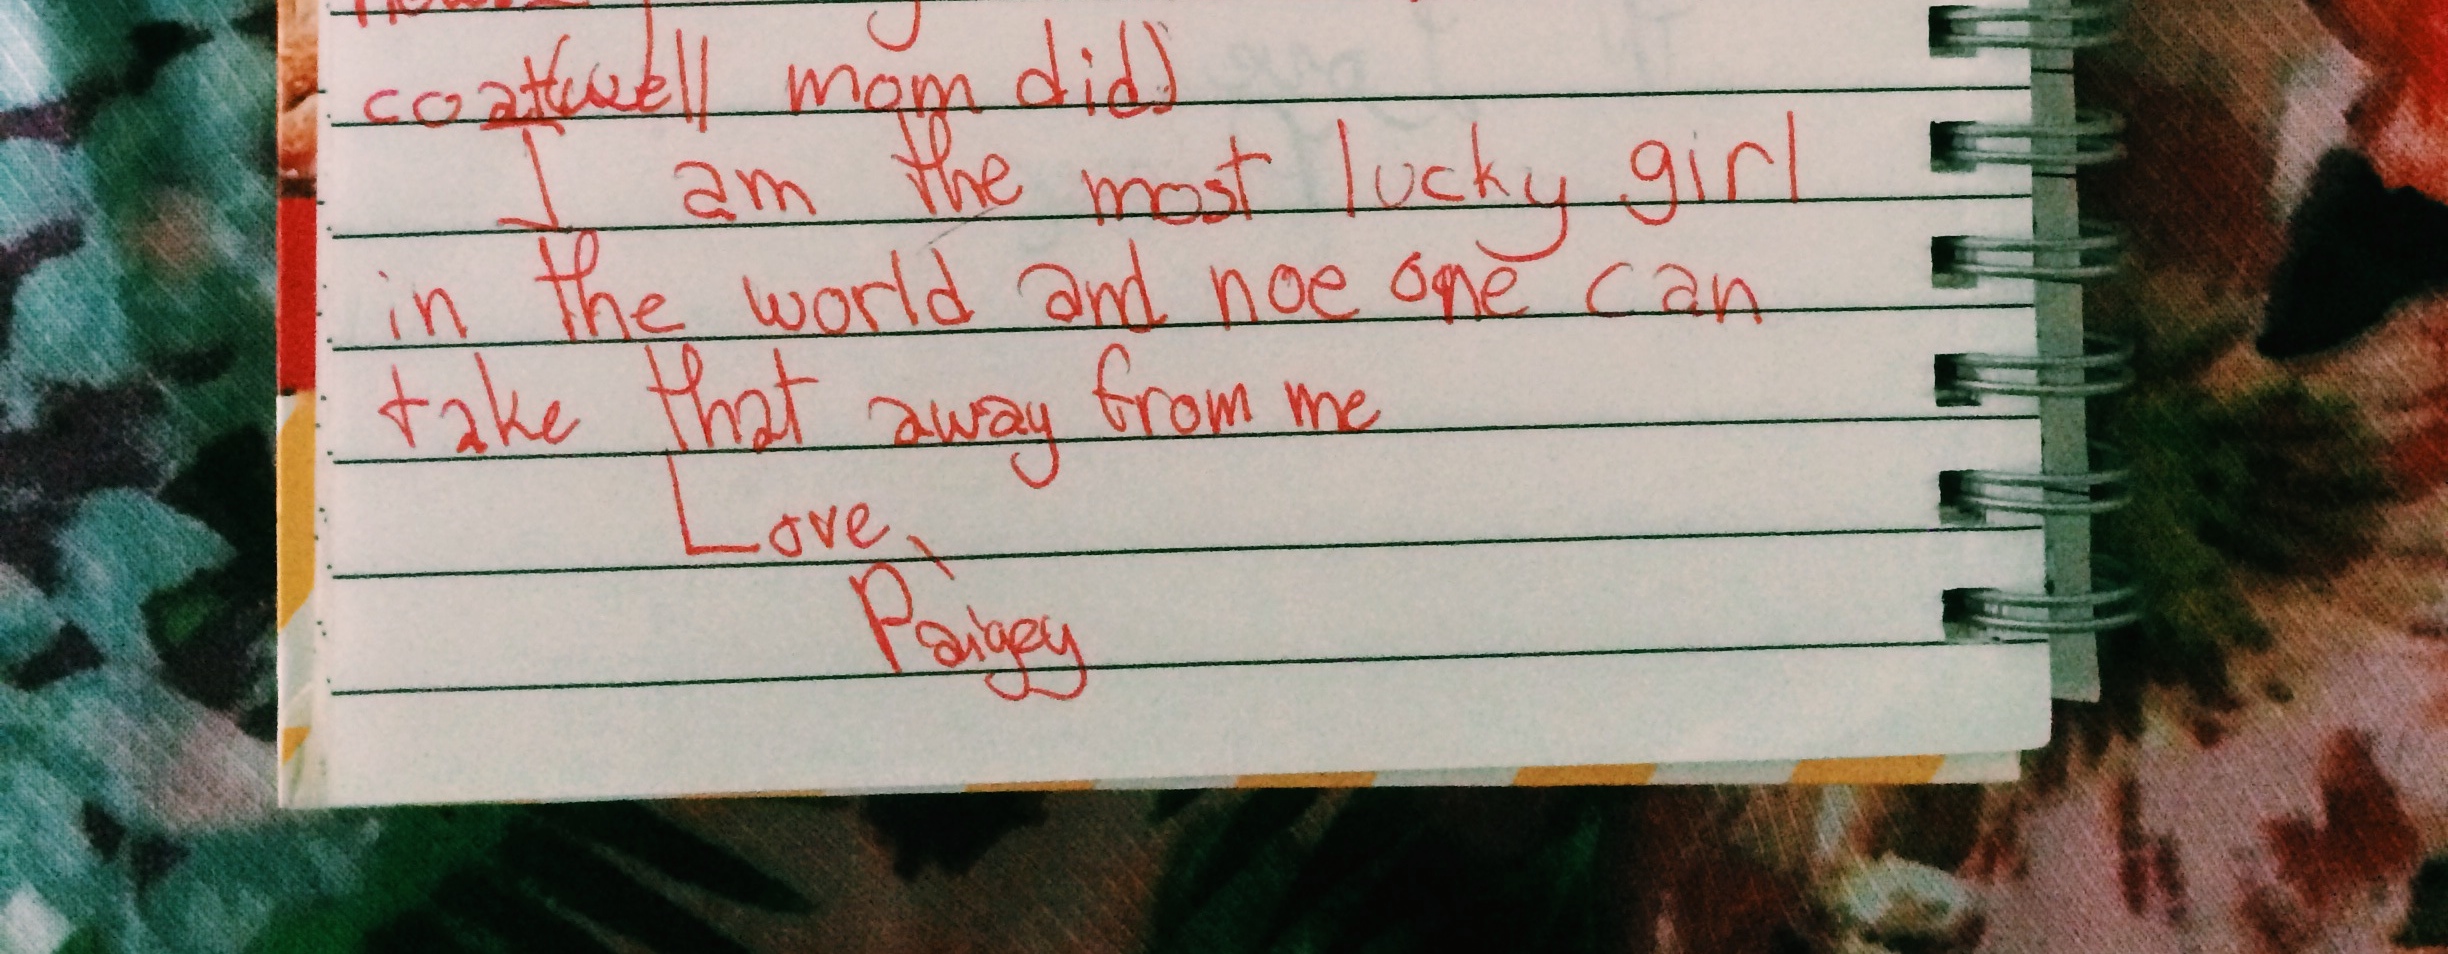 coat(well mom did)
I am the most lucky girl
in the world and noe one can
take that away from me
Love,
Paigey